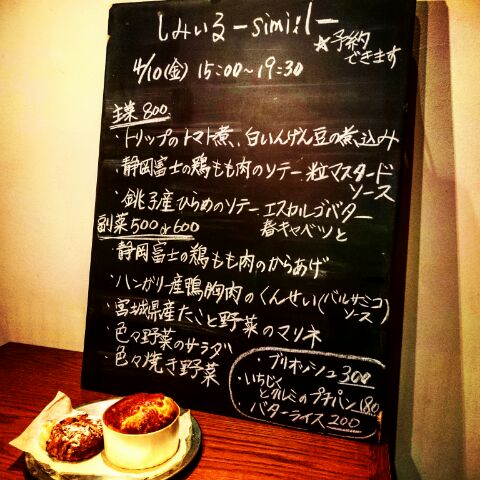 しみいる -simil-
☆予約
できます
4/10(金) 15:00〜19:30
主菜 800
・トリップのトマト煮、白いんげん豆の煮込み
・静岡富士の鶏もも肉のソテー 粒マスタード
ソース
・銚子産ひらめのソテー エスカルゴバター
春キャベツと
副菜 500or600
・静岡富士の鶏もも肉のからあげ
・ハンガリー産鴨胸肉のくんせい(バルサミコ
ソース)
・宮城県産たこと野菜のマリネ
・色々野菜のサラダ
・色々焼き野菜
・ブリオッシュ 300
・いちじく
とクルミのプチパン 180
・バターライス 200